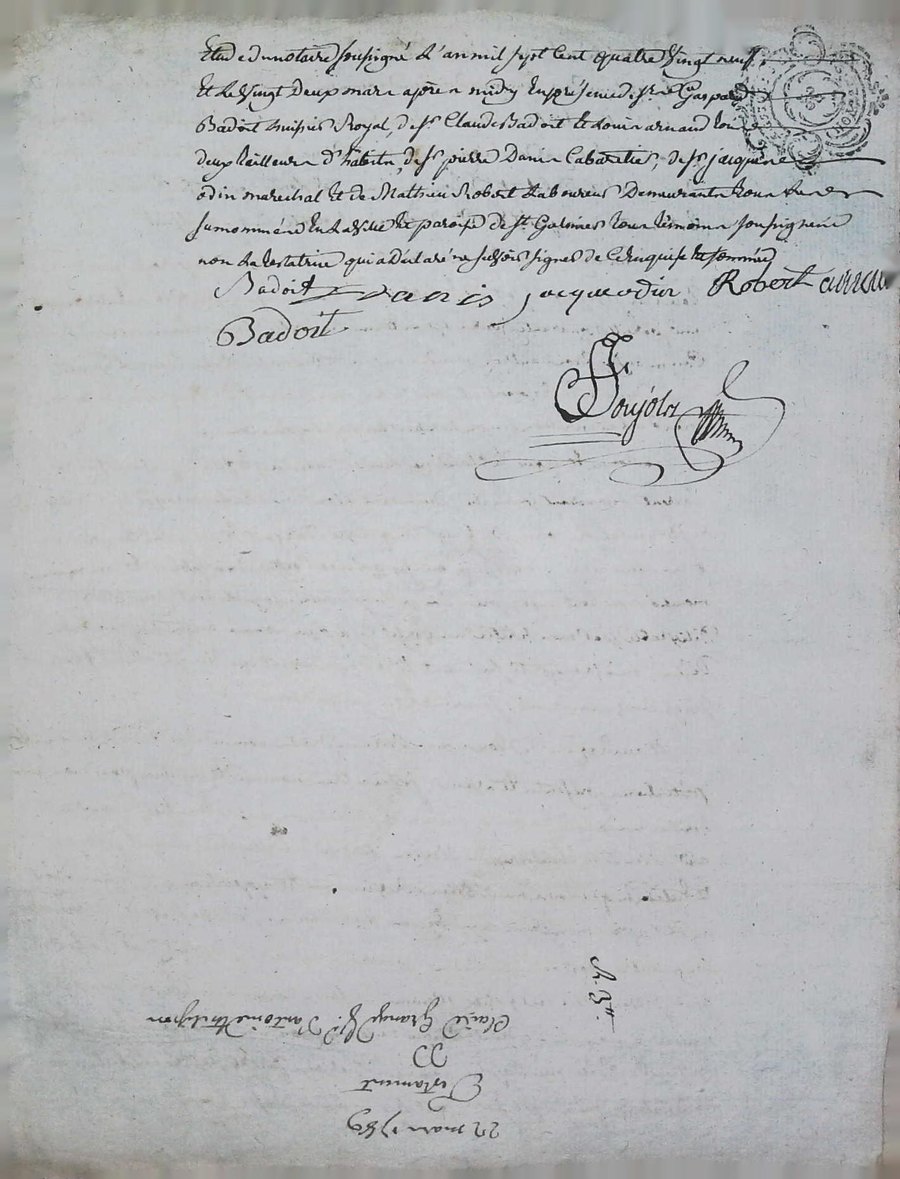 Etude du notaire soussigné L'an mil sept Cent quatre Vingt neuf,
Et Le Vingt Deux mars après midy En présence de sr Gaspard
Badoit huissier Royal, de sr Claude Badoit Et Louis arnaud tous
deux tailleurs d'habits, de sr pierre Danis Cabaretier, de sr jacques
odin marechal Et de Mathieu Robert Laboureur Demeurants tous
surnommés En La Ville Et paroisse de St Galmier tous témoins soussignés
non La testatrice qui a déclaré ne sçavoir signer de Ce Enquise Et sommée
Badoit Danis jacque odin Robert arnaud
Badoit
Claire Grange Antoine
Testament
22 mars 1789